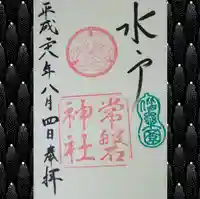 水戸
常磐
神社
平成二六年八月四日奉拝